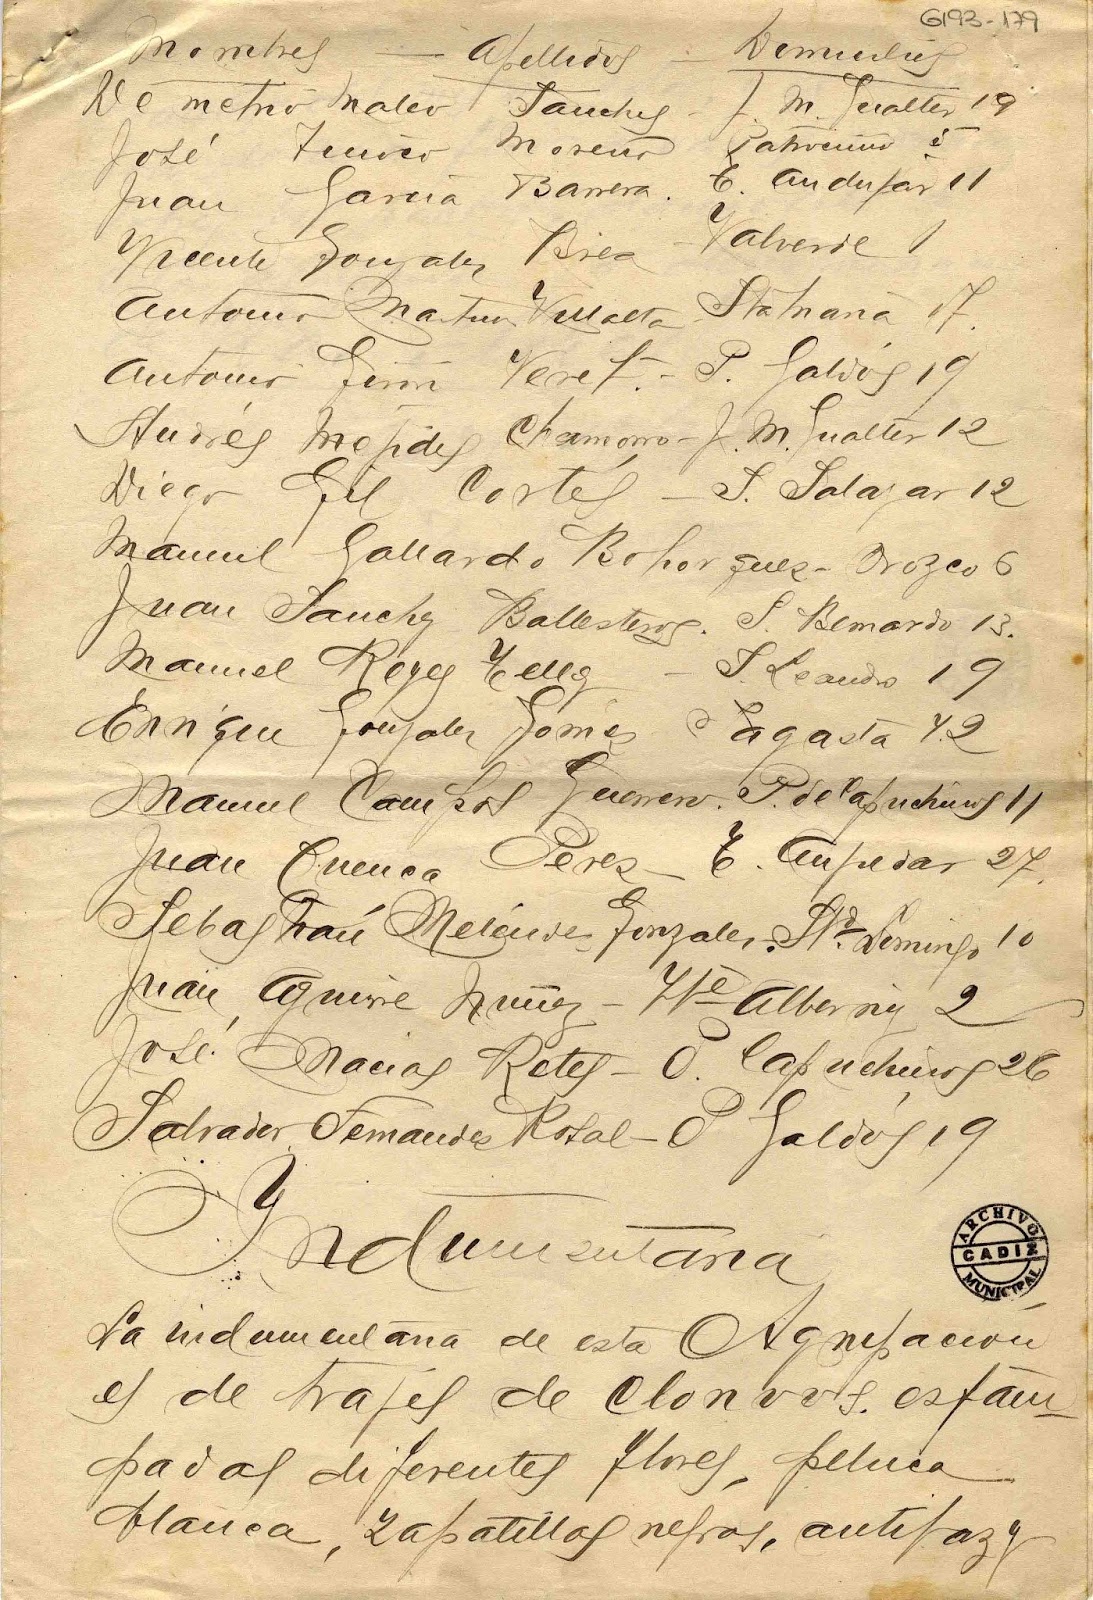 6193-179
Nombres — Apellidos — Domicilios
Demetrio Mateo Sanches - J. M. Gualter 19
José Moreno Patrocinio
Juan Garcia Barrera. E. Andujar 11
Vicente Gonzalez Brea - Valverde 1
Antonio Villalta Sta Maria 17.
Antonio - P. Galdós 19
Andrés Chamorro - J. M. Gualter 12
Diego Gil Cortés - S. Salazar 12
Manuel Gallardo Bohorquez - Orozco 6
Juan Sanches Ballesteros. S. Bernardo 13.
Manuel Reyes Tellez - S. Leandro 19
Enrique Gonzales Gómes Sagasta 42
Manuel Campos Guerrero. P. de Capuchinos 11
Juan Cuenca Peres - E. 27.
Sebastian Meléndes Gonzales. Sto. Domingo 10
Juan Aguirre Nuñez - 2
José Macias Retes - P. Capuchinos 26
Salvador Fernandes Rosal - P Galdós 19
Yndumentaria
La indumentaria de esta Agrupación
es de trajes de Clonvvs. estam-
padas diferentes flores, peluca
blanca, zapatillas negras, antifaz y
ARCHIVO
CADIZ
MUNICIPAL